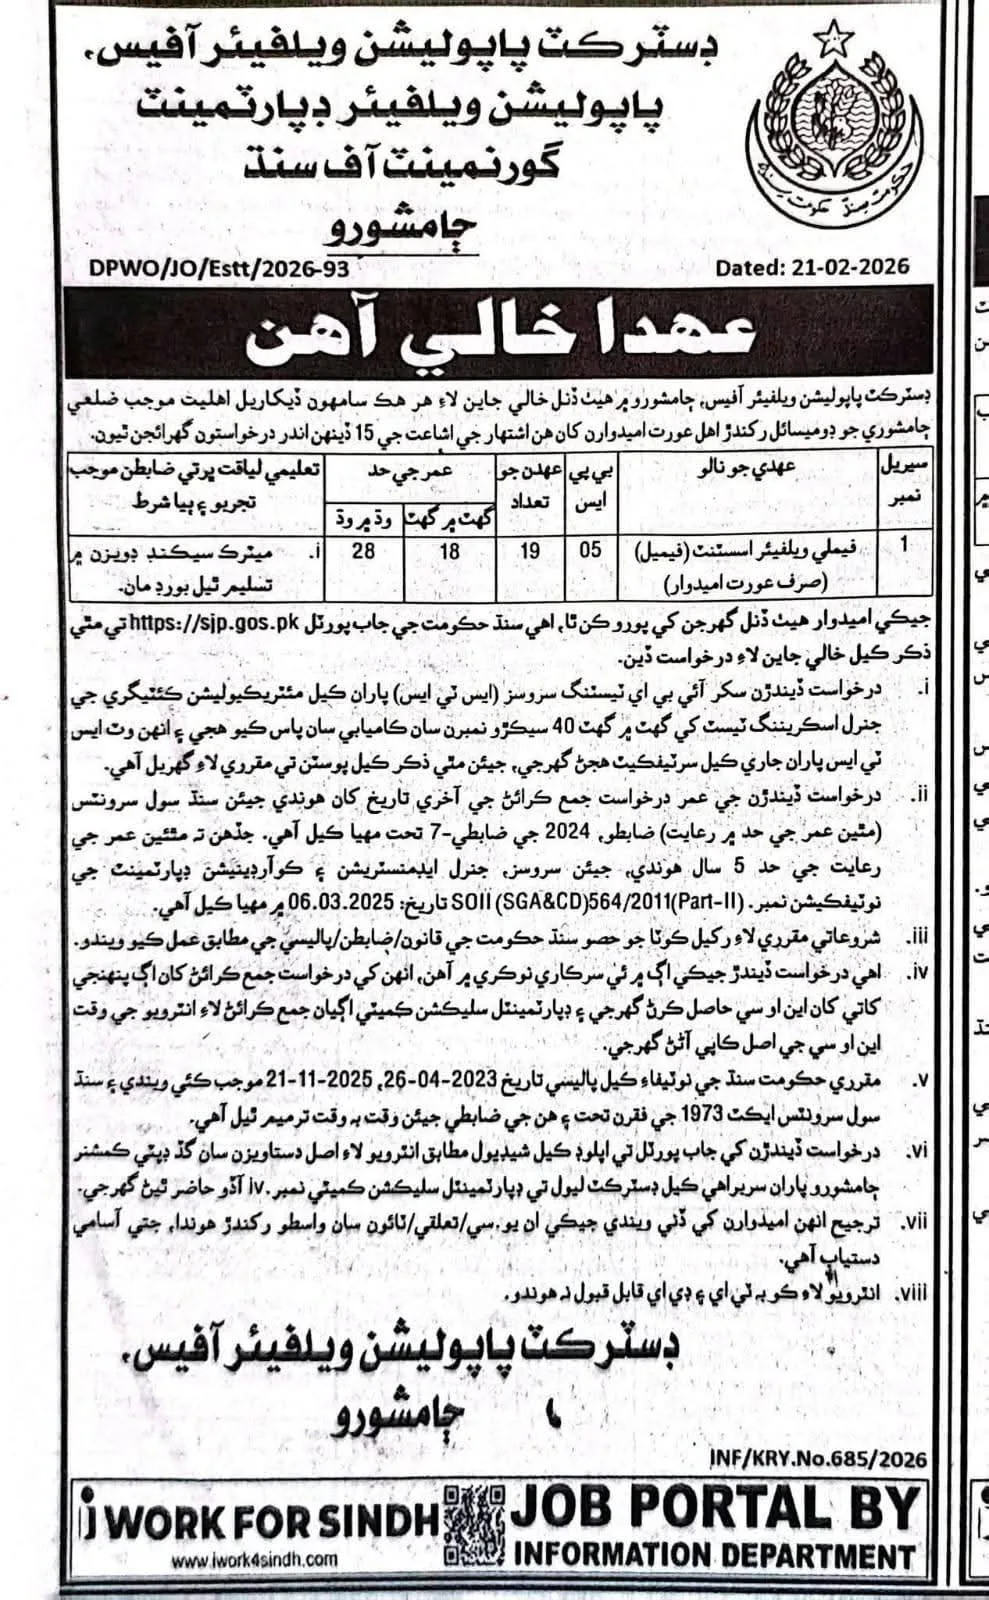 ڊسٽرڪٽ پاپوليشن ويلفيئر آفيس،
پاپوليشن ويلفيئر ڊپارٽمينٽ
گورنمينٽ آف سنڌ
ڄامشورو
حڪومت سنڌ
DPWO/JO/Estt/2026-93
Dated: 21-02-2026
عهدا خالي آهن
ڊسٽرڪٽ پاپوليشن ويلفيئر آفيس، ڄامشورو ۾ هيٺ ڏنل خالي جاين لاءِ هر هڪ سامهون ڏيکاريل اهليت موجب ضلعي
ڄامشوري جو ڊوميسائل رکندڙ اهل عورت اميدوارن کان هن اشتهار جي اشاعت جي 15 ڏينهن اندر درخواستون گهرائجن ٿيون.
سيريل نمبر
عهدي جو نالو
بي پي ايس
عهدن جو تعداد
عمر جي حد
گهٽ ۾ گهٽ
وڌ ۾ وڌ
تعليمي لياقت ڀرتي ضابطن موجب
تجربو ۽ ٻيا شرط
1
فيملي ويلفيئر اسسٽنٽ (فيميل)
(صرف عورت اميدوار)
05
19
18
28
i. ميٽرڪ سيڪنڊ ڊويزن ۾
تسليم ٿيل بورڊ مان.
جيڪي اميدوار هيٺ ڏنل گهرجن کي پورو ڪن ٿا، اهي سنڌ حڪومت جي جاب پورٽل https://sjp.gos.pk تي مٿي
ذڪر ڪيل خالي جاين لاءِ درخواست ڏين.
i. درخواست ڏيندڙن سکر آئي بي اي ٽيسٽنگ سروسز (ايس ٽي ايس) پاران ڪيل مئٽريڪيوليشن ڪئٽيگري جي
جنرل اسڪريننگ ٽيسٽ کي گهٽ ۾ گهٽ 40 سيڪڙو نمبرن سان ڪاميابي سان پاس ڪيو هجي ۽ انهن وٽ ايس
ٽي ايس پاران جاري ڪيل سرٽيفڪيٽ هجڻ گهرجي، جيئن مٿي ذڪر ڪيل پوسٽن تي مقرري لاءِ گهربل آهي.
ii. درخواست ڏيندڙن جي عمر درخواست جمع ڪرائڻ جي آخري تاريخ کان هوندي جيئن سنڌ سول سرونٽس
(مٿين عمر جي حد ۾ رعايت) ضابطو، 2024 جي ضابطي-7 تحت مهيا ڪيل آهي. جڏهن ته مٿئين عمر جي
رعايت جي حد 5 سال هوندي، جيئن سروسز، جنرل ايڊمنسٽريشن ۽ ڪوآرڊينيشن ڊپارٽمينٽ جي
نوٽيفڪيشن نمبر. SOII (SGA&CD)564/2011(Part-II) تاريخ: 06.03.2025 ۾ مهيا ڪيل آهي.
iii. شروعاتي مقرري لاءِ رکيل ڪوٽا جو حصو سنڌ حڪومت جي قانون/ضابطن/پاليسي جي مطابق عمل ڪيو ويندو.
iv. اهي درخواست ڏيندڙ جيڪي اڳ ۾ ئي سرڪاري نوڪري ۾ آهن، انهن کي درخواست جمع ڪرائڻ کان اڳ پنهنجي
کاتي کان اين او سي حاصل ڪرڻ گهرجي ۽ ڊپارٽمينٽل سليڪشن ڪميٽي اڳيان جمع ڪرائڻ لاءِ انٽرويو جي وقت
اين او سي جي اصل ڪاپي آڻڻ گهرجي.
v. مقرري حڪومت سنڌ جي نوٽيفاءِ ڪيل پاليسي تاريخ 26-04-2023، 21-11-2025 موجب ڪئي ويندي ۽ سنڌ
سول سرونٽس ايڪٽ 1973 جي فقرن تحت ۽ هن جي ضابطي جيئن وقت به وقت ترميم ٿيل آهي.
vi. درخواست ڏيندڙن کي جاب پورٽل تي اپلوڊ ڪيل شيڊيول مطابق انٽرويو لاءِ اصل دستاويزن سان گڏ ڊپٽي ڪمشنر
ڄامشورو پاران سربراهي ڪيل ڊسٽرڪٽ ليول تي ڊپارٽمينٽل سليڪشن ڪميٽي نمبر.iv آڏو حاضر ٿيڻ گهرجي.
vii. ترجيح انهن اميدوارن کي ڏني ويندي جيڪي ان يو.سي/تعلقي/ٽائون سان واسطو رکندڙ هوندا، جتي آسامي
دستياب آهي.
viii. انٽرويو لاءِ ڪو به ٽي اي ۽ ڊي اي قابل قبول نه هوندو.
ڊسٽرڪٽ پاپوليشن ويلفيئر آفيس،
ڄامشورو
INF/KRY.No.685/2026
i WORK FOR SINDH
www.iwork4sindh.com
JOB PORTAL BY
INFORMATION DEPARTMENT